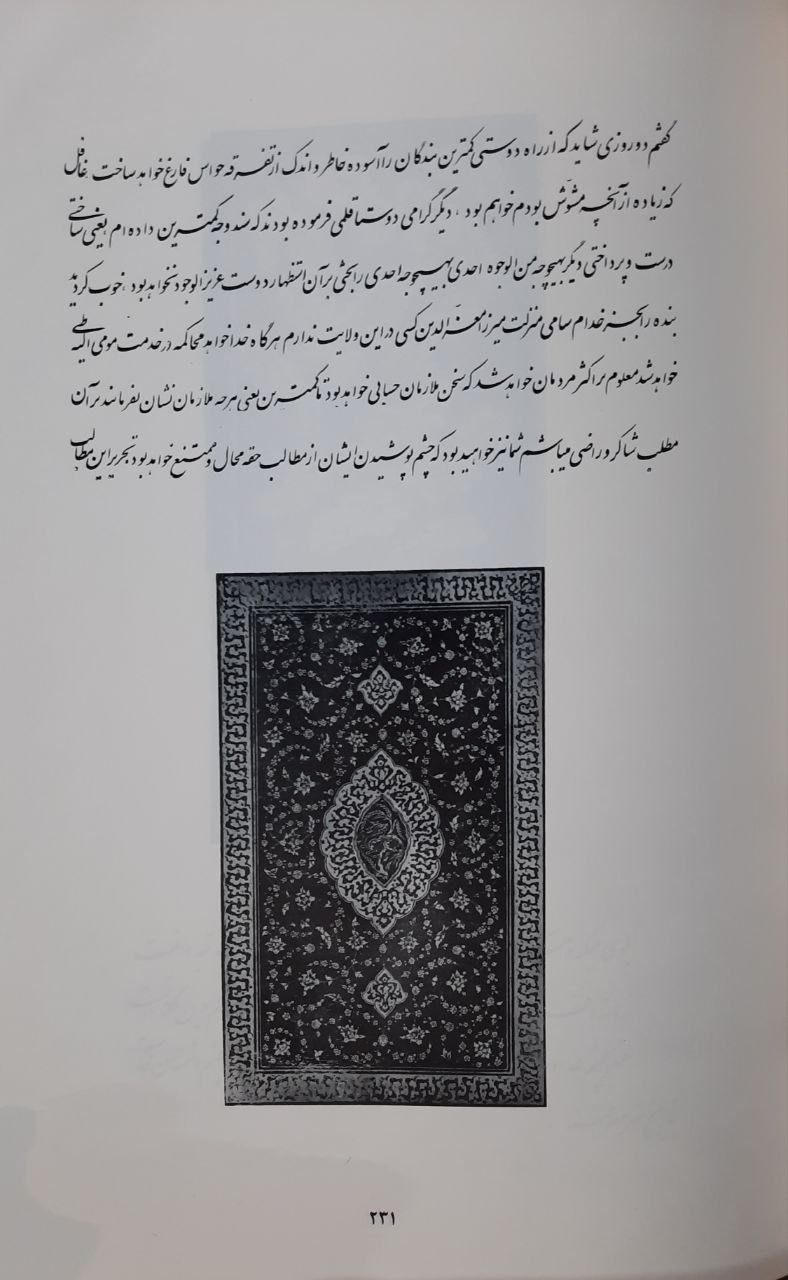 گفتم دو روزی شاید که از راه دوستی کمترین بندگان را آسوده خاطر و اندک از تفرقه حواس فارغ خواهد ساخت غافل
که زیاده از آنچه مشوّش بودم خواهم بود ، دیگر گرامی دوستا قلمی فرموده بودند که سند وجه کمترین داده‌ام یعنی ساختی
درست و پرداختی دیگر بهیچوجه من الوجوه احدی بهیچوجه احدی را بحثی بر آن استظهار دوست عزیز الوجود نخواهد بود ، خوب کردید
بنده را بجز خدام سامی منزلت میرزا معزّالدین کسی در این ولایت ندارم هرگاه خدا خواهد محاکمه در خدمت مومی الیه طی
خواهد شد معلوم بر اکثر مردمان خواهد شد که سخن ملازمان حسابی خواهد بود تا کمترین یعنی هرچه ملازمان نشان بفرمایند بر آن
مطلب شاکر و راضی میباشم شما نیز خواهید بود که چشم پوشیدن ایشان از مطالب حقه محال و ممتنع خواهد بود تحریر این مطالب
۲۳۱